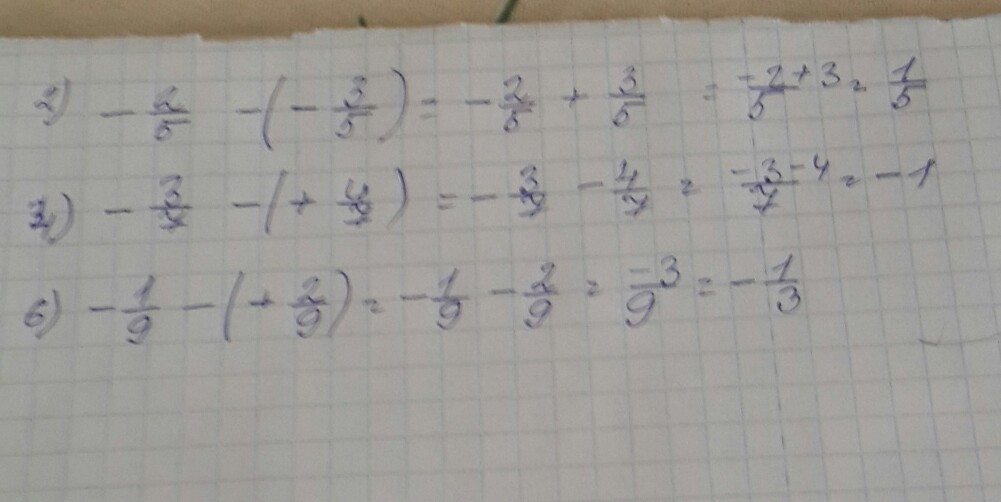 2) - 2/5 - (- 3/5) = - 2/5 + 3/5 = (-2+3)/5 = 1/5
- 3/7 - (+ 4/7) = - 3/7 - 4/7 = (-3-4)/7 = -1
6) - 1/9 - (+ 2/9) = - 1/9 - 2/9 = -3/9 = - 1/3